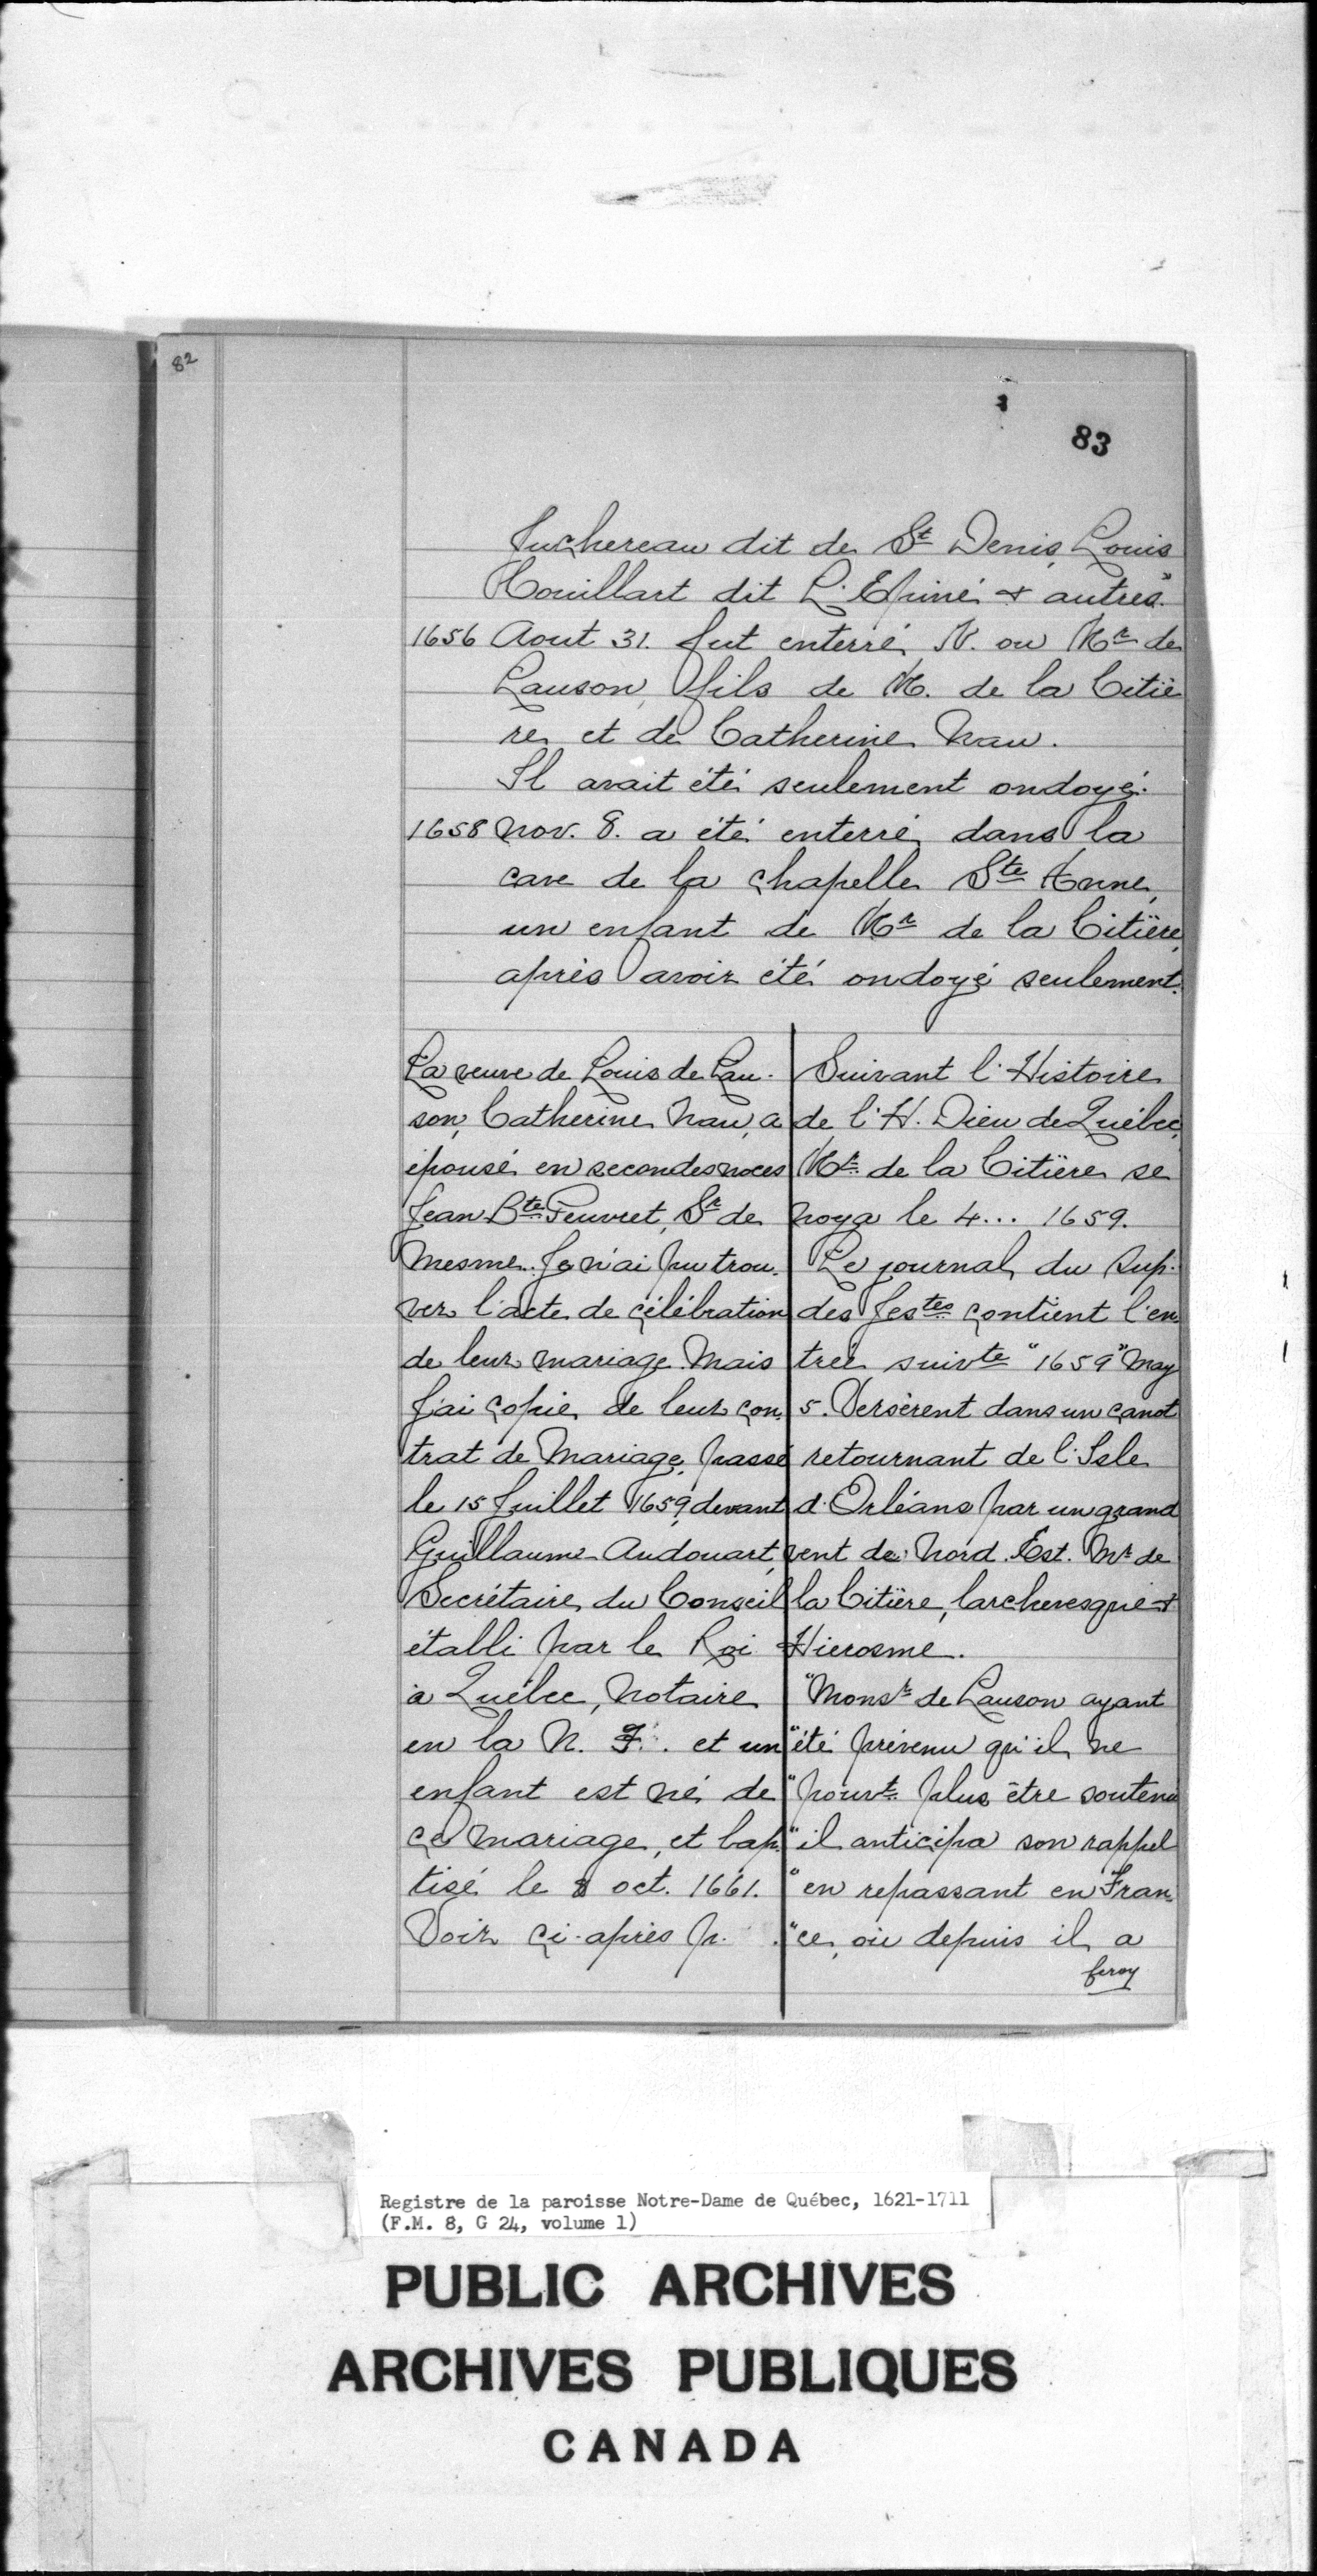 82
83
Juchereau dit de St Denis, Louis
Couillart dit L'Epiné & autres."
1656 Aout 31. fut enterré N. ou Mr de
Lauson, fils de M. de la Citiè
re et de Catherine Nau.
Il avait été seulement ondoyé.
1658 Nov. 8. a été enterré, dans la
cave de la chapelle Ste Anne,
un enfant de Mr de la Citière,
après avoir été ondoyé seulement.
La veuve de Louis de Lau-
son, Catherine Nau, a
épousé en secondes noces
Jean Bte Peuvret, Sr de
Mesme. Je n'ai pu trou-
ver l'acte de célébration
de leur mariage. Mais
j'ai copie de leur con-
trat de Mariage, passé
le 15 Juillet 1659, devant
Guillaume Audouart,
Secrétaire du Conseil
établi par le Roi
à Québec, Notaire
en la N. F. et un
enfant est né de
ce mariage, et bap-
tisé le 8 oct. 1661.
Voir ci-après p. .
Suivant l'Histoire
de l'H. Dieu de Québec,
Mr de la Citière se
noya le 4... 1659.
Le journal du Sup.
des Jestes contient l'en-
trée suivte "1659" May
5. Versèrent dans un canot
retournant de l'Isle
d'Orléans par un grand
vent de Nord. Est. Mr de
la Citière, larchevesque &
Hierosme.
"Monsr de Lauson ayant
"été prévenu qu'il ne
"pouvt plus être soutenu
"il anticipa son rappel
"en repassant en Fran-
"ce, où depuis il a
Registre de la paroisse Notre-Dame de Québec, 1621-1711
(F.M. 8, G 24, volume 1)
PUBLIC ARCHIVES
ARCHIVES PUBLIQUES
CANADA